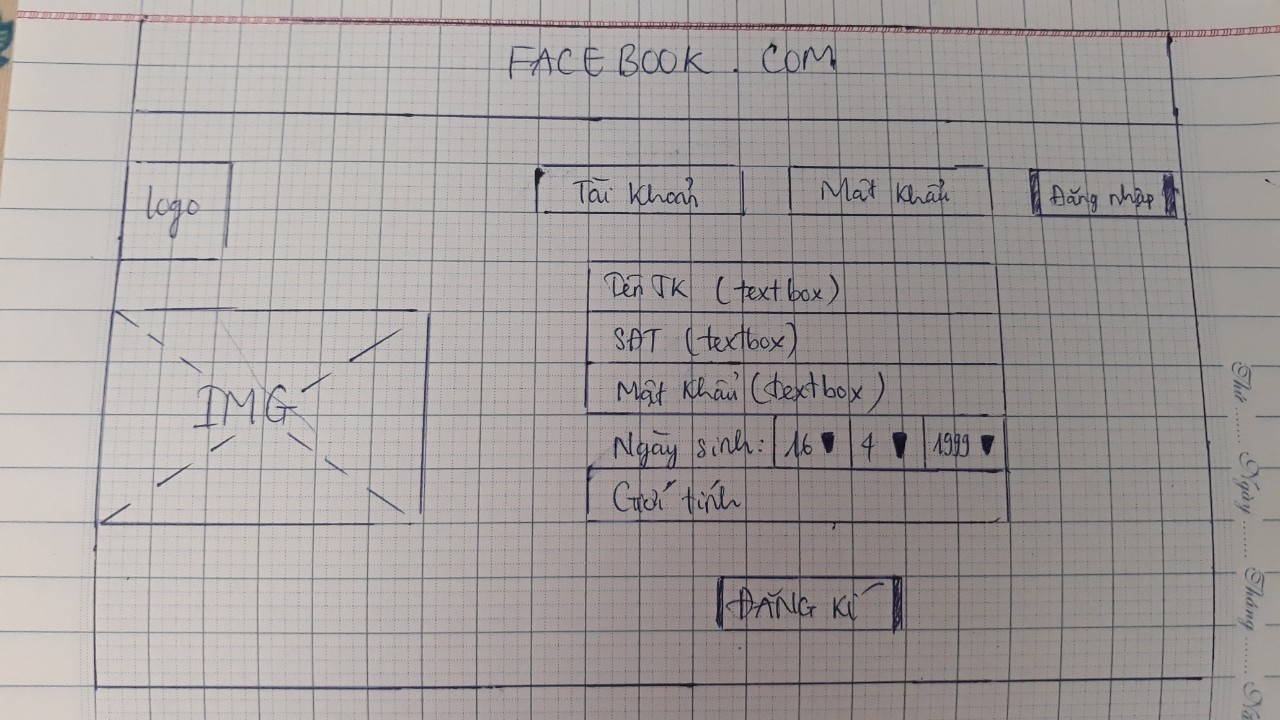 FACEBOOK.COM
logo
Tài Khoản
Mật Khẩu
Đăng nhập
IMG
Tên TK (textbox)
SĐT (textbox)
Mật Khẩu (textbox)
Ngày sinh: 16 4 1999
Giới tính
ĐĂNG KÍ
Thứ ........ Ngày ........ Tháng ........